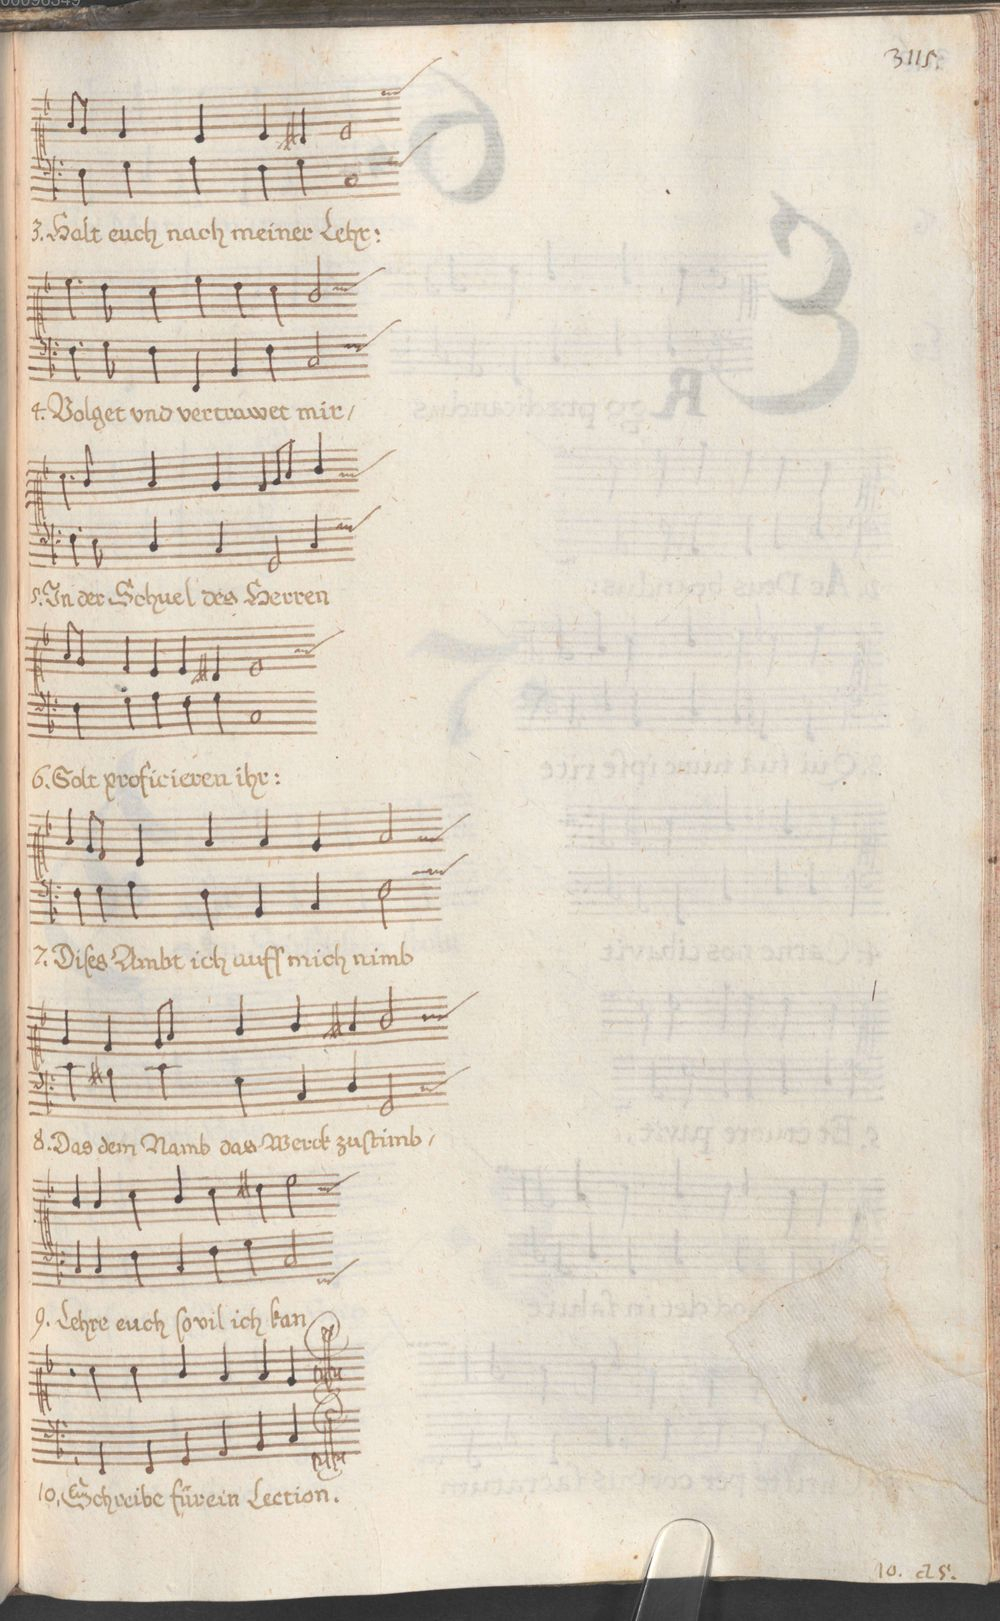 3115.
3. Halt euch nach meiner Lehr:
4. Volget vnd vertrawet mir/
5. In der Schuel des Herren
6. Solt proficieren ihr:
7. Dises Ambt ich auff mich nimb
8. Das dem Namb das Werck zustimb/
9. Lehre euch sovil ich kan
10. Schreibe für ein Lection.